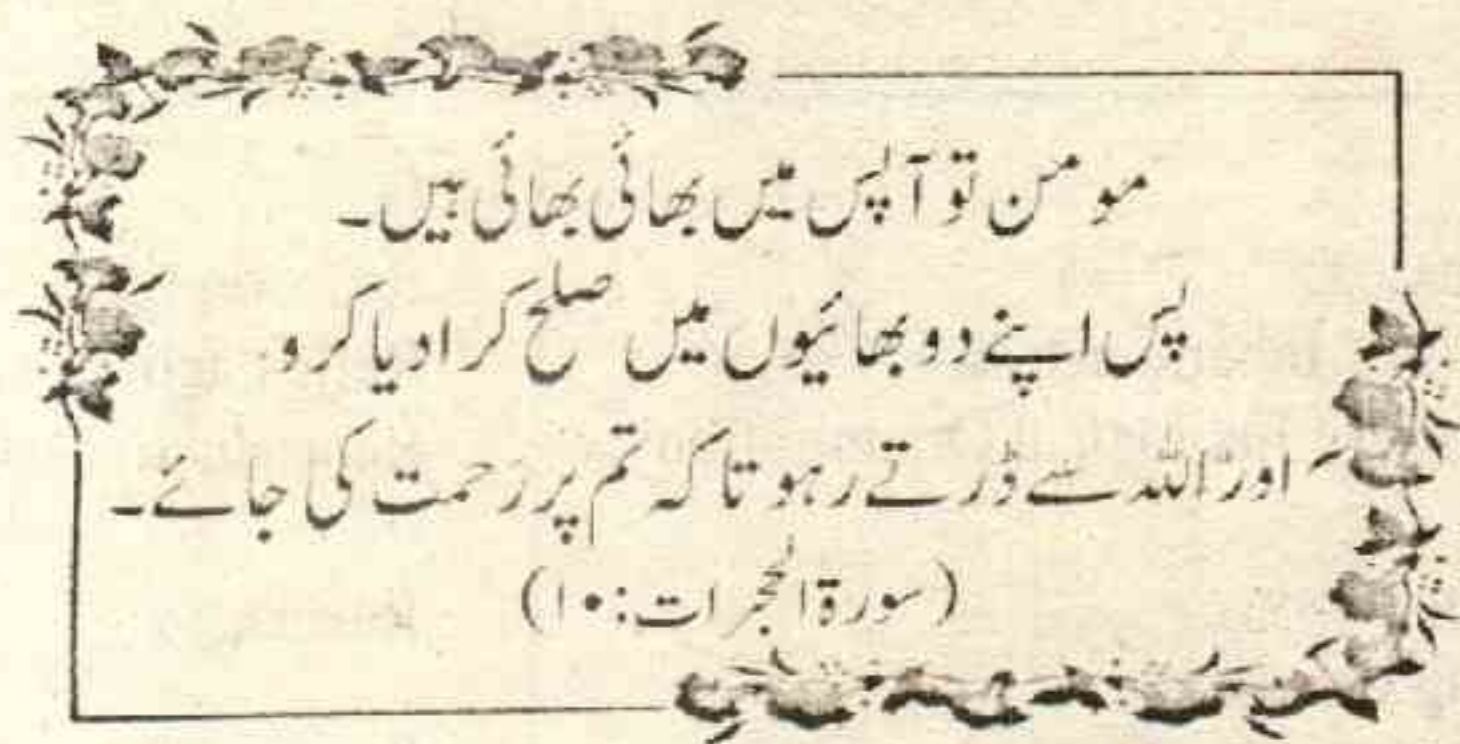 مومن تو آپس میں بھائی بھائی ہیں۔
پس اپنے دو بھائیوں میں صلح کرا دیا کرو
اور اللہ سے ڈرتے رہو تا کہ تم پر رحمت کی جائے۔
(سورۃ الحجرات: ۱۰)